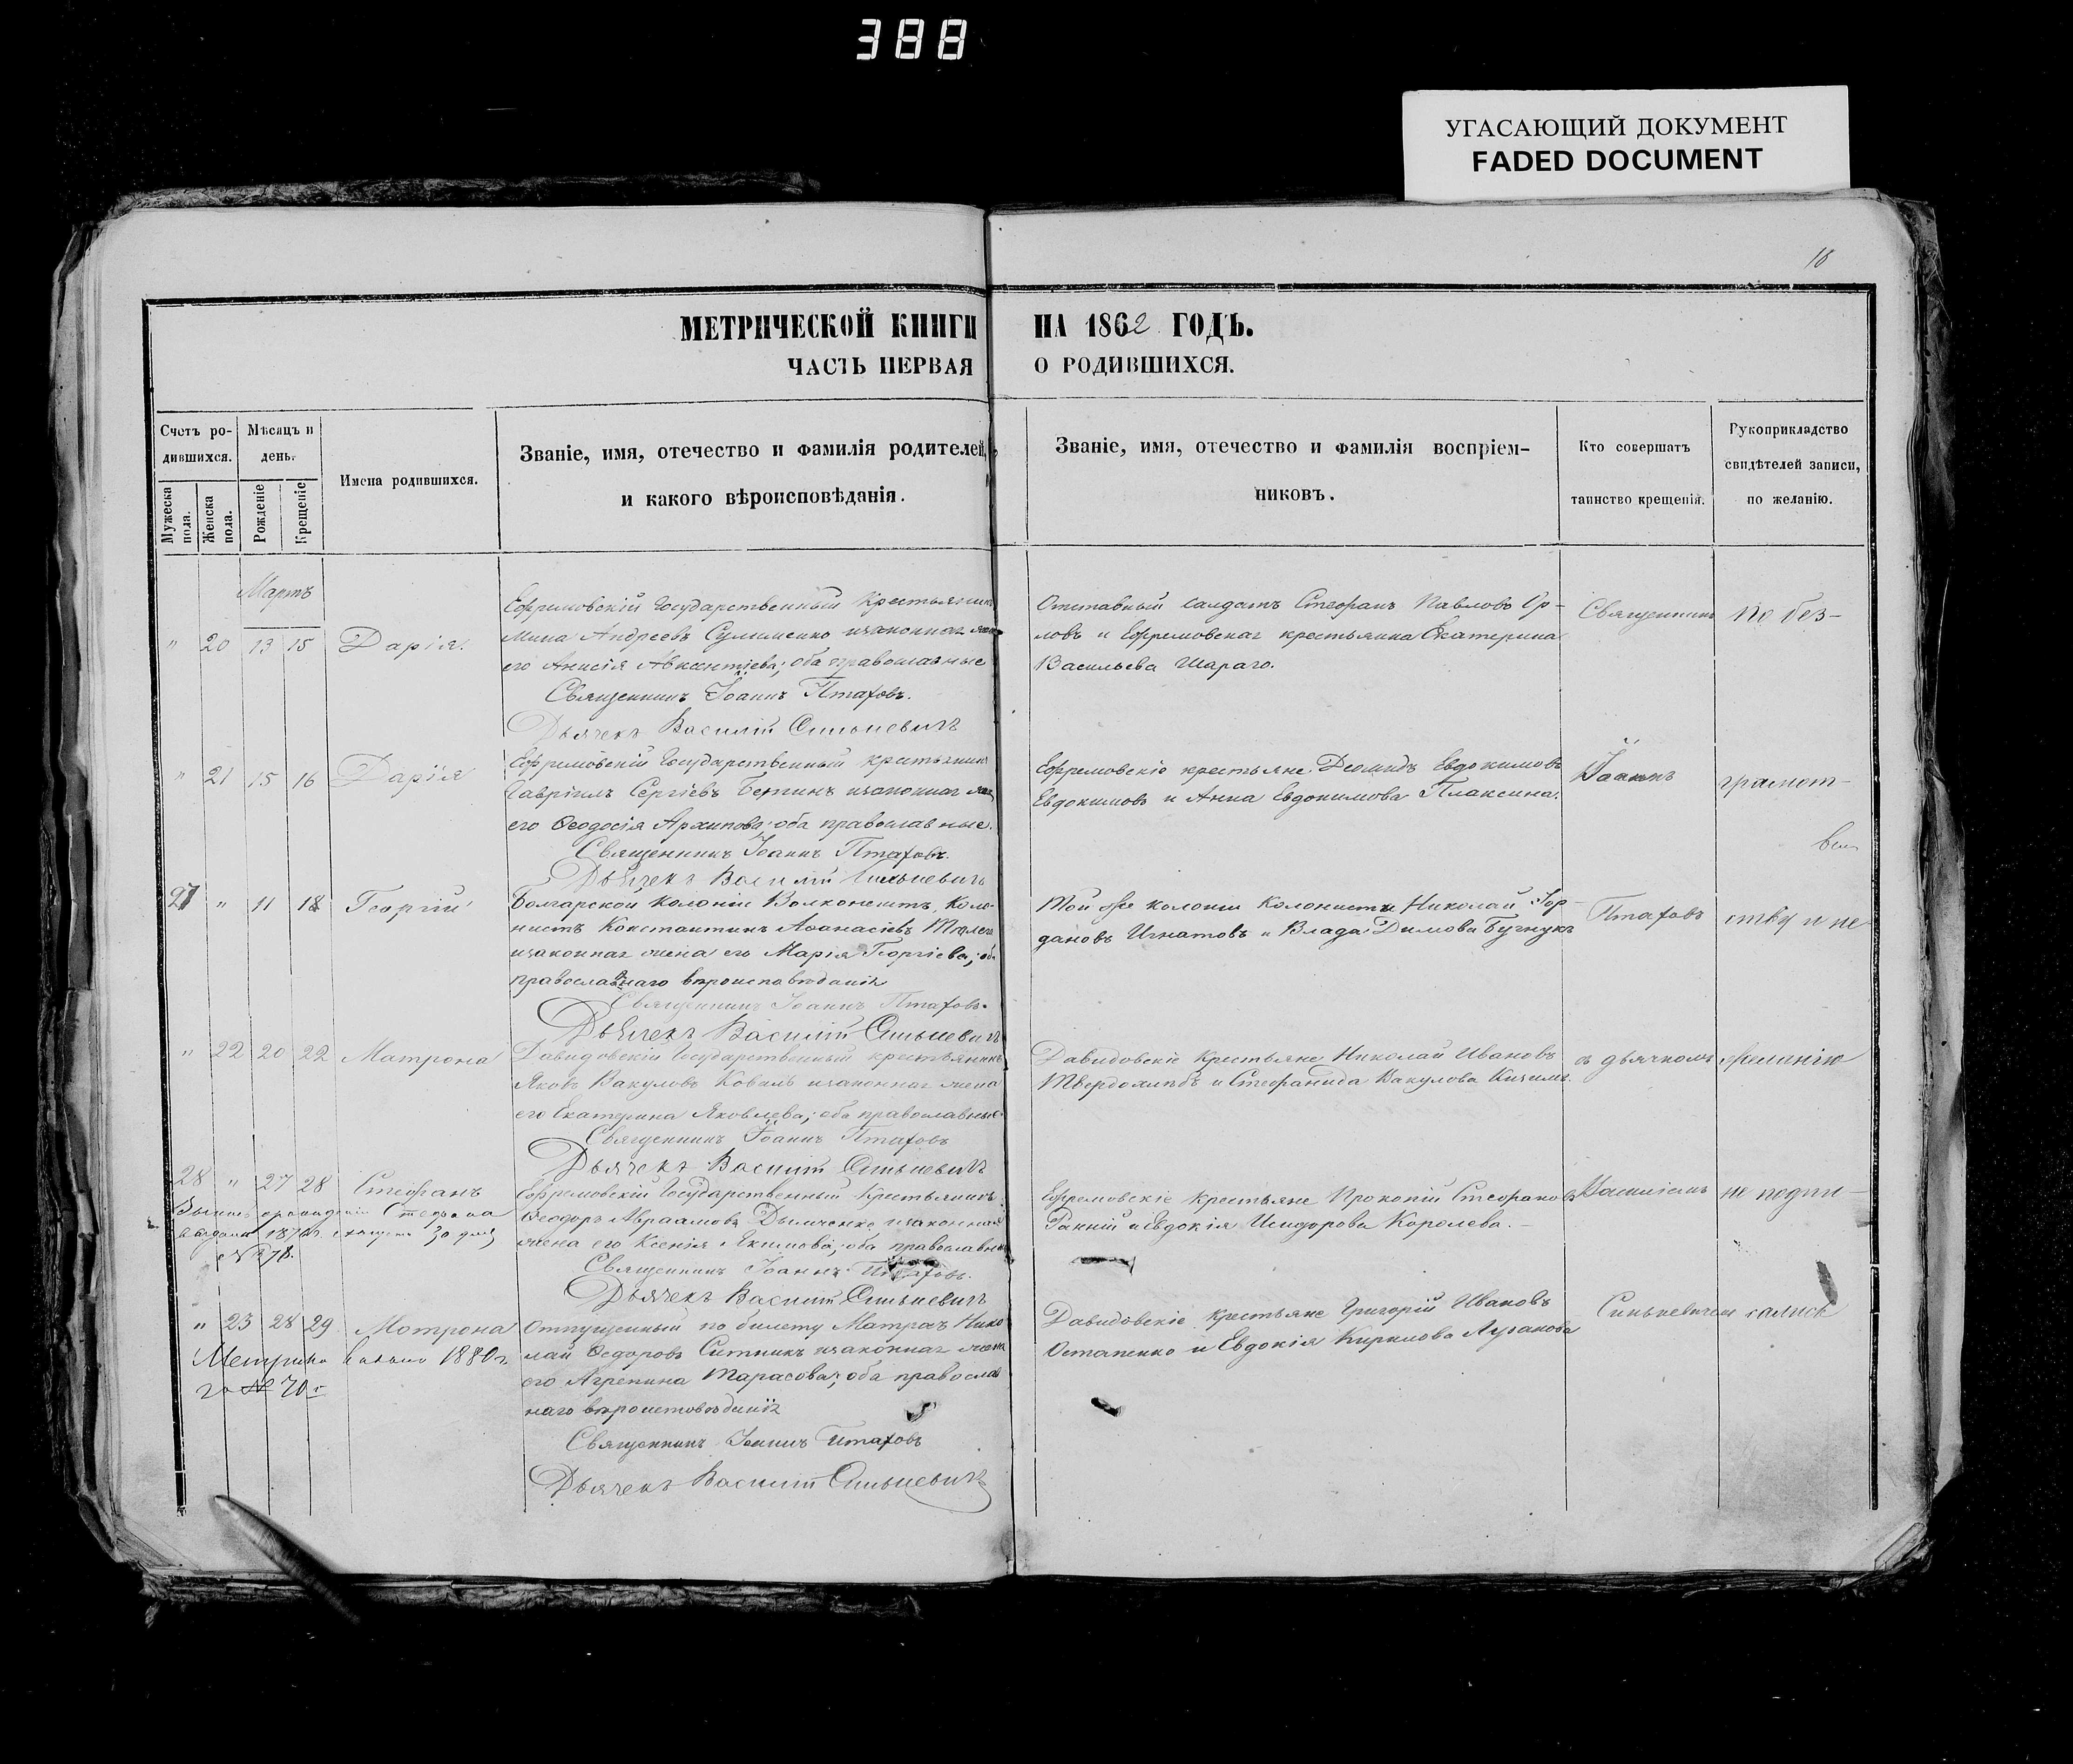 388
УГАСАЮЩИЙ ДОКУМЕНТ
FADED DOCUMENT
18
МЕТРИЧЕСКОЙ КНИГИ НА 1862 ГОДЪ.
ЧАСТЬ ПЕРВАЯ О РОДИВШИХСЯ.
Счетъ ро-
дившихся.
Мужеска пола.
Женска пола.
Мѣсяцъ и
день.
Рожденіе
Крещеніе
Имена родившихся.
Званіе, имя, отечество и фамилія родителей,
и какого вѣроисповѣданія.
Званіе, имя, отечество и фамилія воспріем-
никовъ.
Кто совершатъ
таинство крещенія.
Рукоприкладство
свидѣтелей записи,
по желанію.
Мартъ
" 20 13 15 Дарія.
Ефремовскій Государственный крестьянинъ
Мина Андреевъ Сулименко и законная жена
его Анисія Авксентіева; оба православные
Священникъ Іоаннъ Птаховъ.
Дьячекъ Василій Синькевичъ
Отставный салдатъ Стефанъ Павловъ Ор-
ловъ и Ефремовская крестьянка Екатерина
Васильева Шараго.
Священникъ
по без-
" 21 15 16 Дарія
Ефремовскій Государственный крестьянинъ
Гавріилъ Сергіевъ и законная жена
его Ѳеодосія Архипова; оба православные.
Священникъ Іоаннъ Птаховъ.
Дьячекъ Василій Синькевичъ
Ефремовскіе крестьяне Деомидъ Евдокимовъ
Евдокимовъ и Анна Евдокимова Плаксина.
Іоаннъ
грамот-
27 " 11 18 Георгій
Болгарской колоніи Волконештъ, Коло-
нистъ Константинъ Аѳанасіевъ
и законная жена его Марія Георгіева; оба
православнаго вѣроисповѣданія
Священникъ Іоаннъ Птаховъ.
Дьячекъ Василій Синькевичъ
Той же колоніи Колонисты Николай Іор-
дановъ Игнатовъ и Влада Димова
Птаховъ
ству и не
" 22 20 22 Матрона
Давидовскій Государственный крестьянинъ
Яковъ Вакуловъ Коваль и законная жена
его Екатерина Яковлева; оба православные
Священникъ Іоаннъ Птаховъ
Дьячекъ Василій Синькевичъ
Давидовскіе Крестьяне Николай Ивановъ
Твердохлѣбъ и Стефанида Вакулова
съ дьячкомъ
желанію
28 " 27 28 Стефанъ
Ефремовскій Государственный Крестьянинъ
Ѳеодоръ Авраамовъ Дымченко и законная
жена его Ксенія Якимова; оба православные
Священникъ Іоаннъ Птаховъ.
Дьячекъ Василій Синькевичъ
Стефана
30 дня
Ефремовскіе крестьяне Прокопій Стефановъ
и Евдокія Исидорова Королева.
Василіемъ
не подпи-
" 23 28 29 Мотрона
Отпущенный по билету Матрозъ Нико-
лай Ѳедоровъ Ситникъ и законная жена
его Агрепина Тарасова; оба православ
наго вѣроисповѣданія
Священникъ Іоаннъ Птаховъ
Дьячекъ Василій Синькевичъ
Метрика 1880 г.
№ 70
Давидовскіе крестьяне Григорій Ивановъ
Остапенко и Евдокія Кирилова
Синькевичем
сались